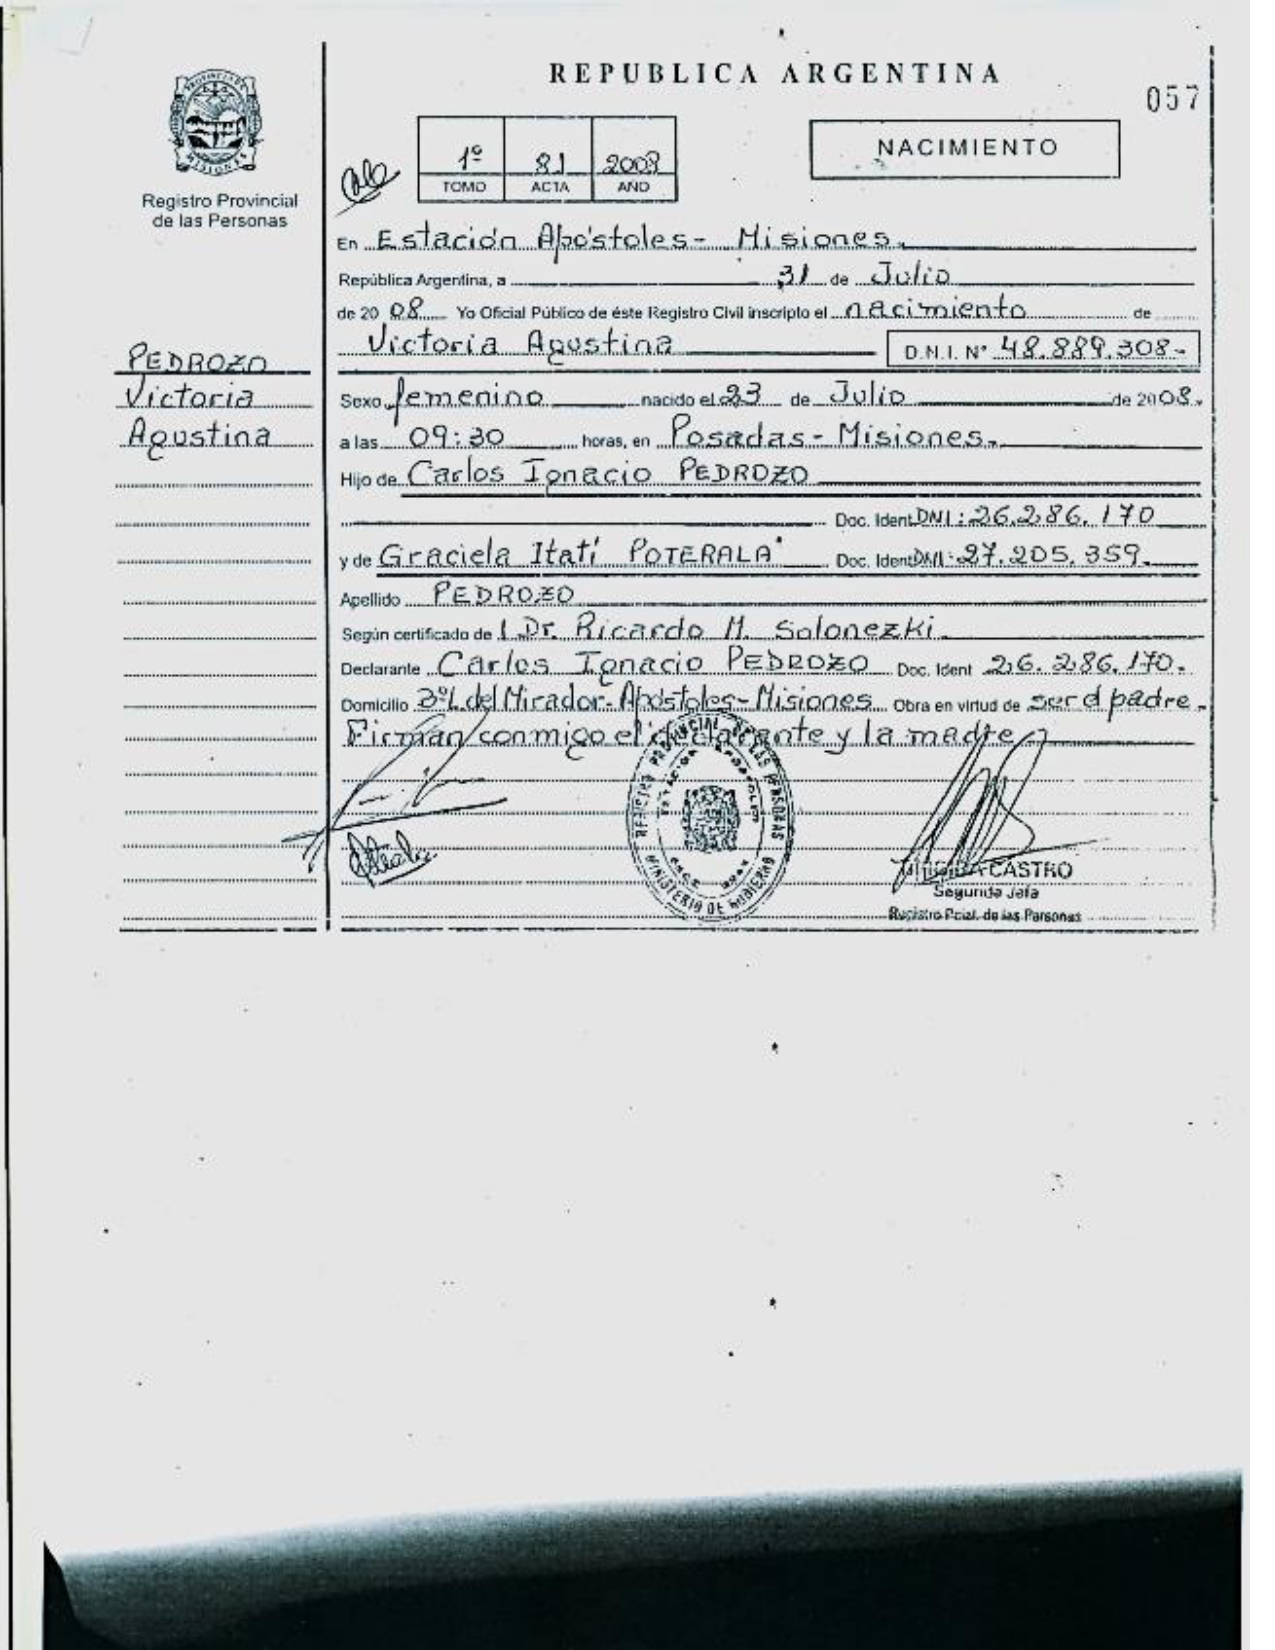 REPUBLICA ARGENTINA
057
PROVINCIA DE MISIONES
Registro Provincial
de las Personas
1º 81 2008
TOMO ACTA AÑO
NACIMIENTO
En Estación Apóstoles - Misiones.
República Argentina, a 31 de Julio
de 20 08 Yo Oficial Público de éste Registro Civil inscripto el nacimiento de
Victoria Agustina D.N.I. Nº 48.889.308-
PEDROZO
Victoria
Agustina
Sexo femenino nacido el 23 de Julio de 2008.
a las 09:30 horas, en Posadas - Misiones.
Hijo de Carlos Ignacio PEDROZO
Doc. Ident DNI: 26.286.170
y de Graciela Itatí POTERALA Doc. Ident DNI: 27.205.359.
Apellido PEDROZO
Según certificado de l Dr. Ricardo M. Solonezki.
Declarante Carlos Ignacio PEDROZO Doc. Ident 26.286.170.
Domicilio Bº L. del Mirador - Apóstoles - Misiones Obra en virtud de ser el padre.
Firman conmigo el declarante y la madre
REGISTRO PROVINCIAL DE LAS PERSONAS
ESTACION APOSTOLES
MINISTERIO DE GOBIERNO
CASTRO
Segunda Jefa
Registro Pcial. de las Personas